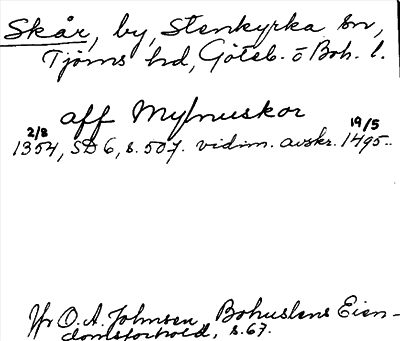 Skår, by, Stenkyrka sn,
Tjörns hd, Göteb. o Boh. l.
aff Mylnuskor
2/8 19/5
1354, SD 6, s. 507. vidim. avskr. 1495.
Jfr O. A. Johnsen, Bohuslens Eien-
domsforhold, s. 67.